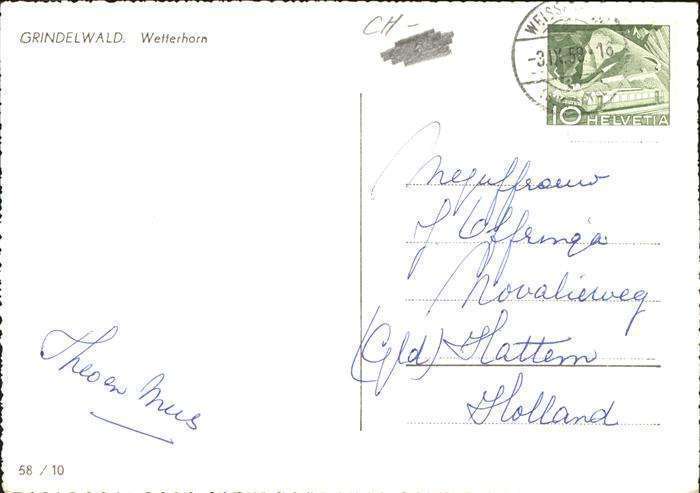 GRINDELWALD. Wetterhorn
CH-
WEISS
-3.IX.58-18
10 HELVETIA
Mejuffrouw
J. Offringa
Novalieweg
(Gld) Hattem
Holland
Theo en
58 / 10